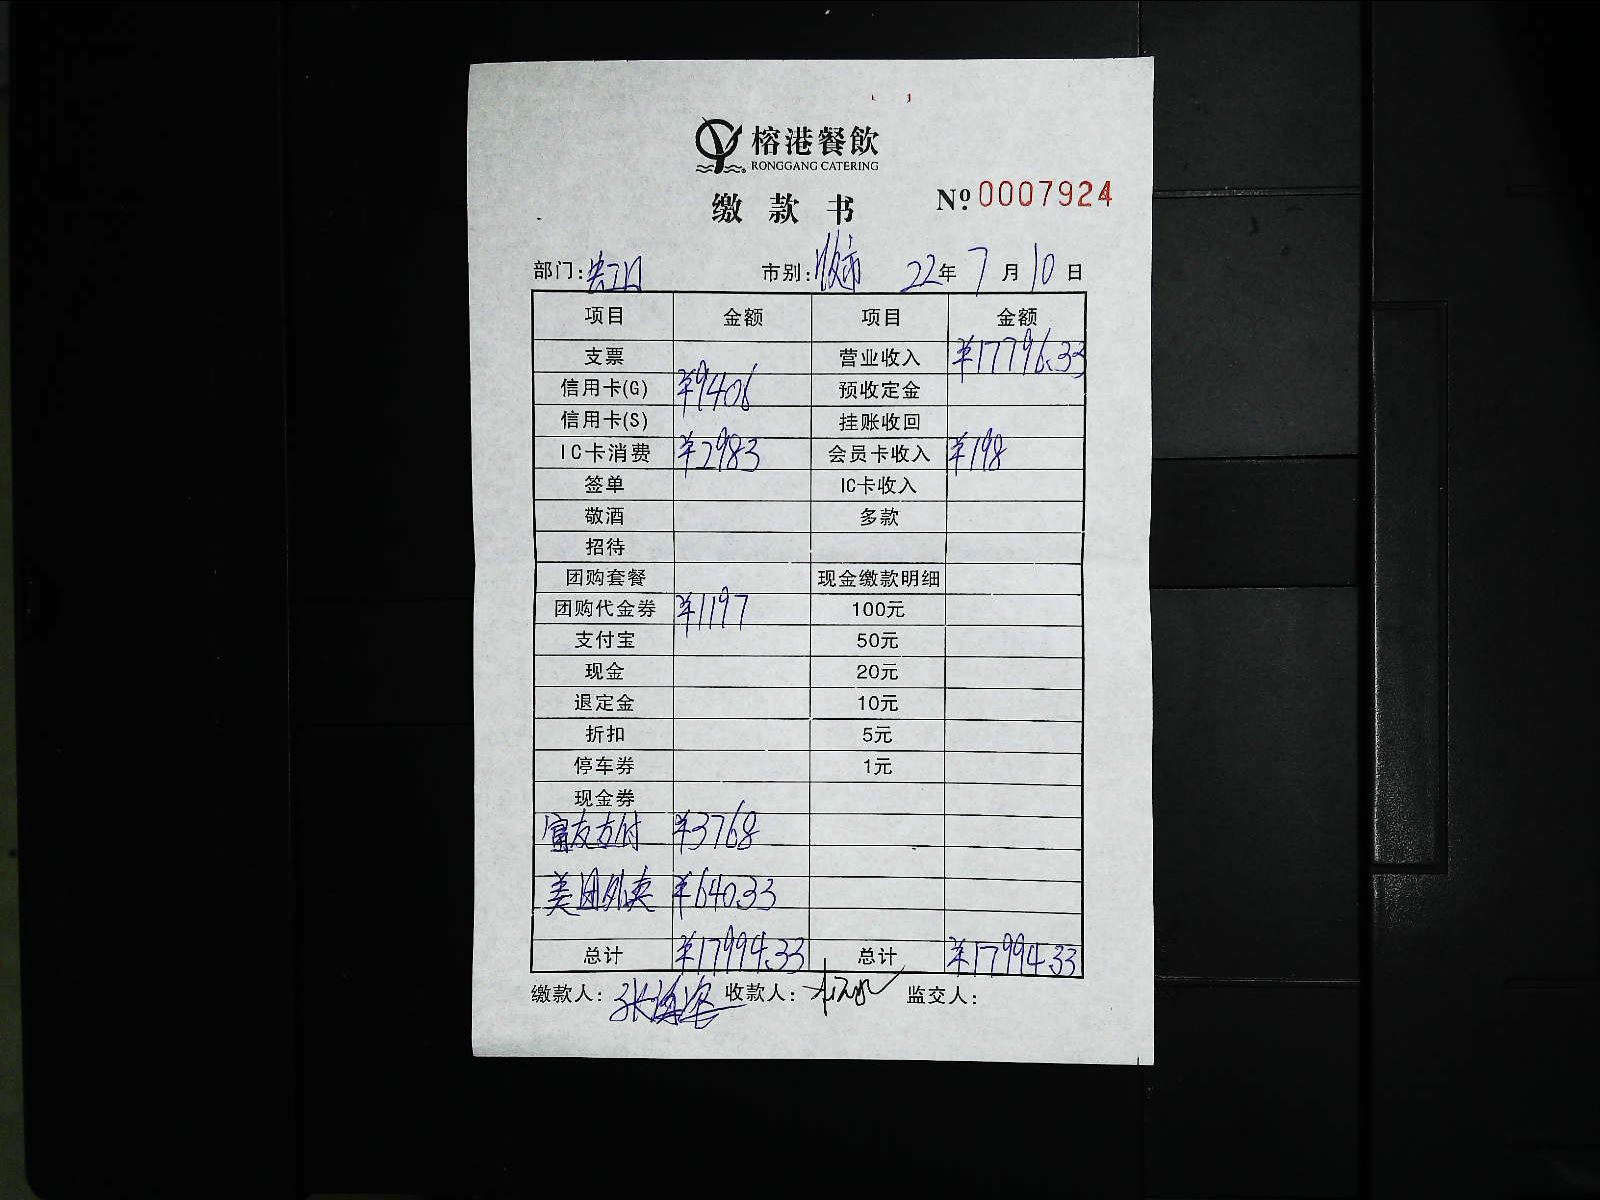 榕港餐飲
RONGGANG CATERING
缴款书 №0007924
部门: 市别: 22年7月10日
项目 金额 项目 金额
支票 营业收入 ¥17796.33
信用卡(G) ¥9406 预收定金
信用卡(S) 挂账收回
IC卡消费 ¥2983 会员卡收入 ¥198
签单 IC卡收入
敬酒 多款
招待
团购套餐 现金缴款明细
团购代金券 ¥1197 100元
支付宝 50元
现金 20元
退定金 10元
折扣 5元
停车券 1元
现金券
富友支付 ¥3768
美团外卖 ¥640.33
总计 ¥17994.33 总计 ¥17994.33
缴款人: 收款人: 监交人: